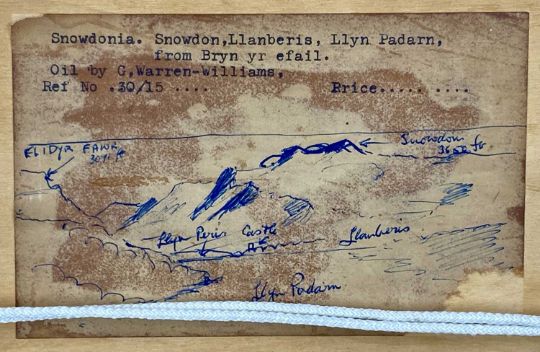 Snowdonia. Snowdon,Llanberis, Llyn Padarn,
from Bryn yr efail.
Oil by G,Warren-Williams,
Ref No .30/15 .... Price..... ....
ELIDYR FAWR
Snowdon
Llyn Peris Castle
Llanberis
Llyn Padarn